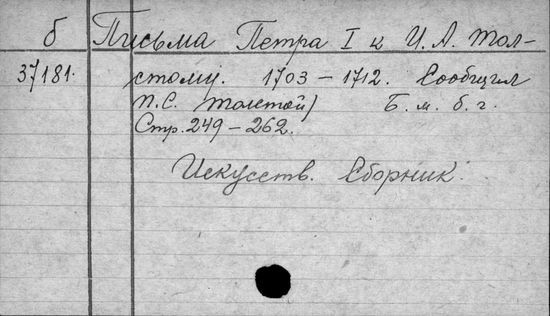 б Письма Петра I к И. А. Тол-
37181. стому. 1703 – 1712. Сообщил
П. С. Толстой) Б. м. б. г.
Стр. 249 – 262.
Искусств. Сборник.